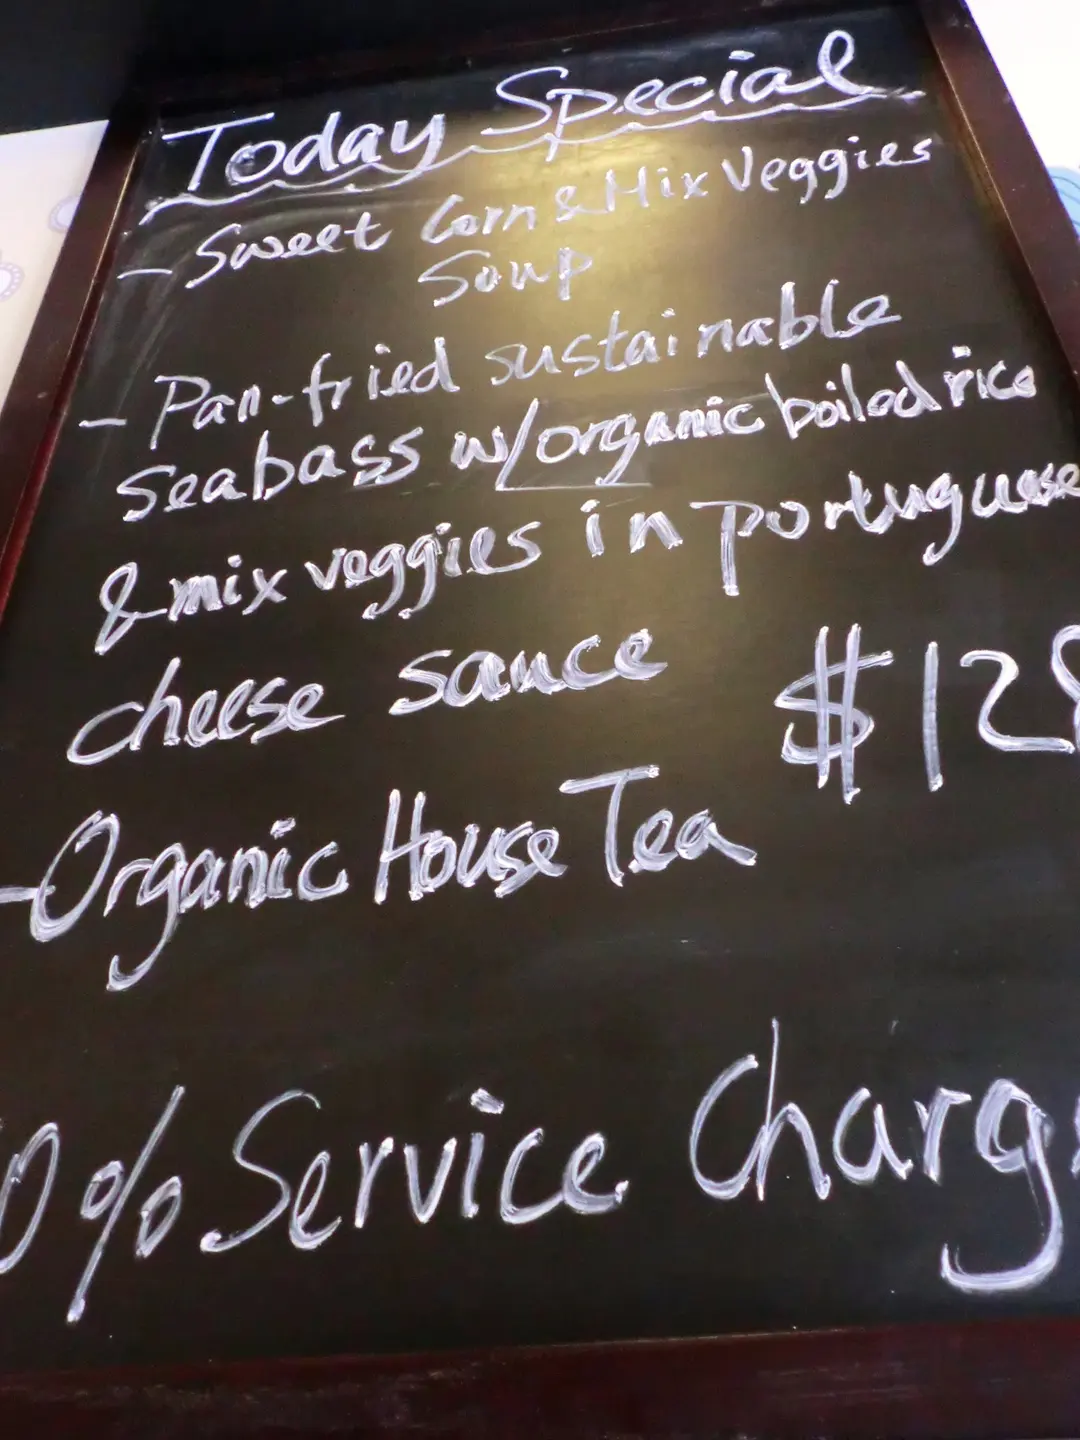 Today Special
- Sweet Corn & Mix Veggies
Soup
- Pan-fried sustainable
seabass w/organic boiled rice
& mix veggies in portuguese
cheese sauce $128
- Organic House Tea
0% Service Charg